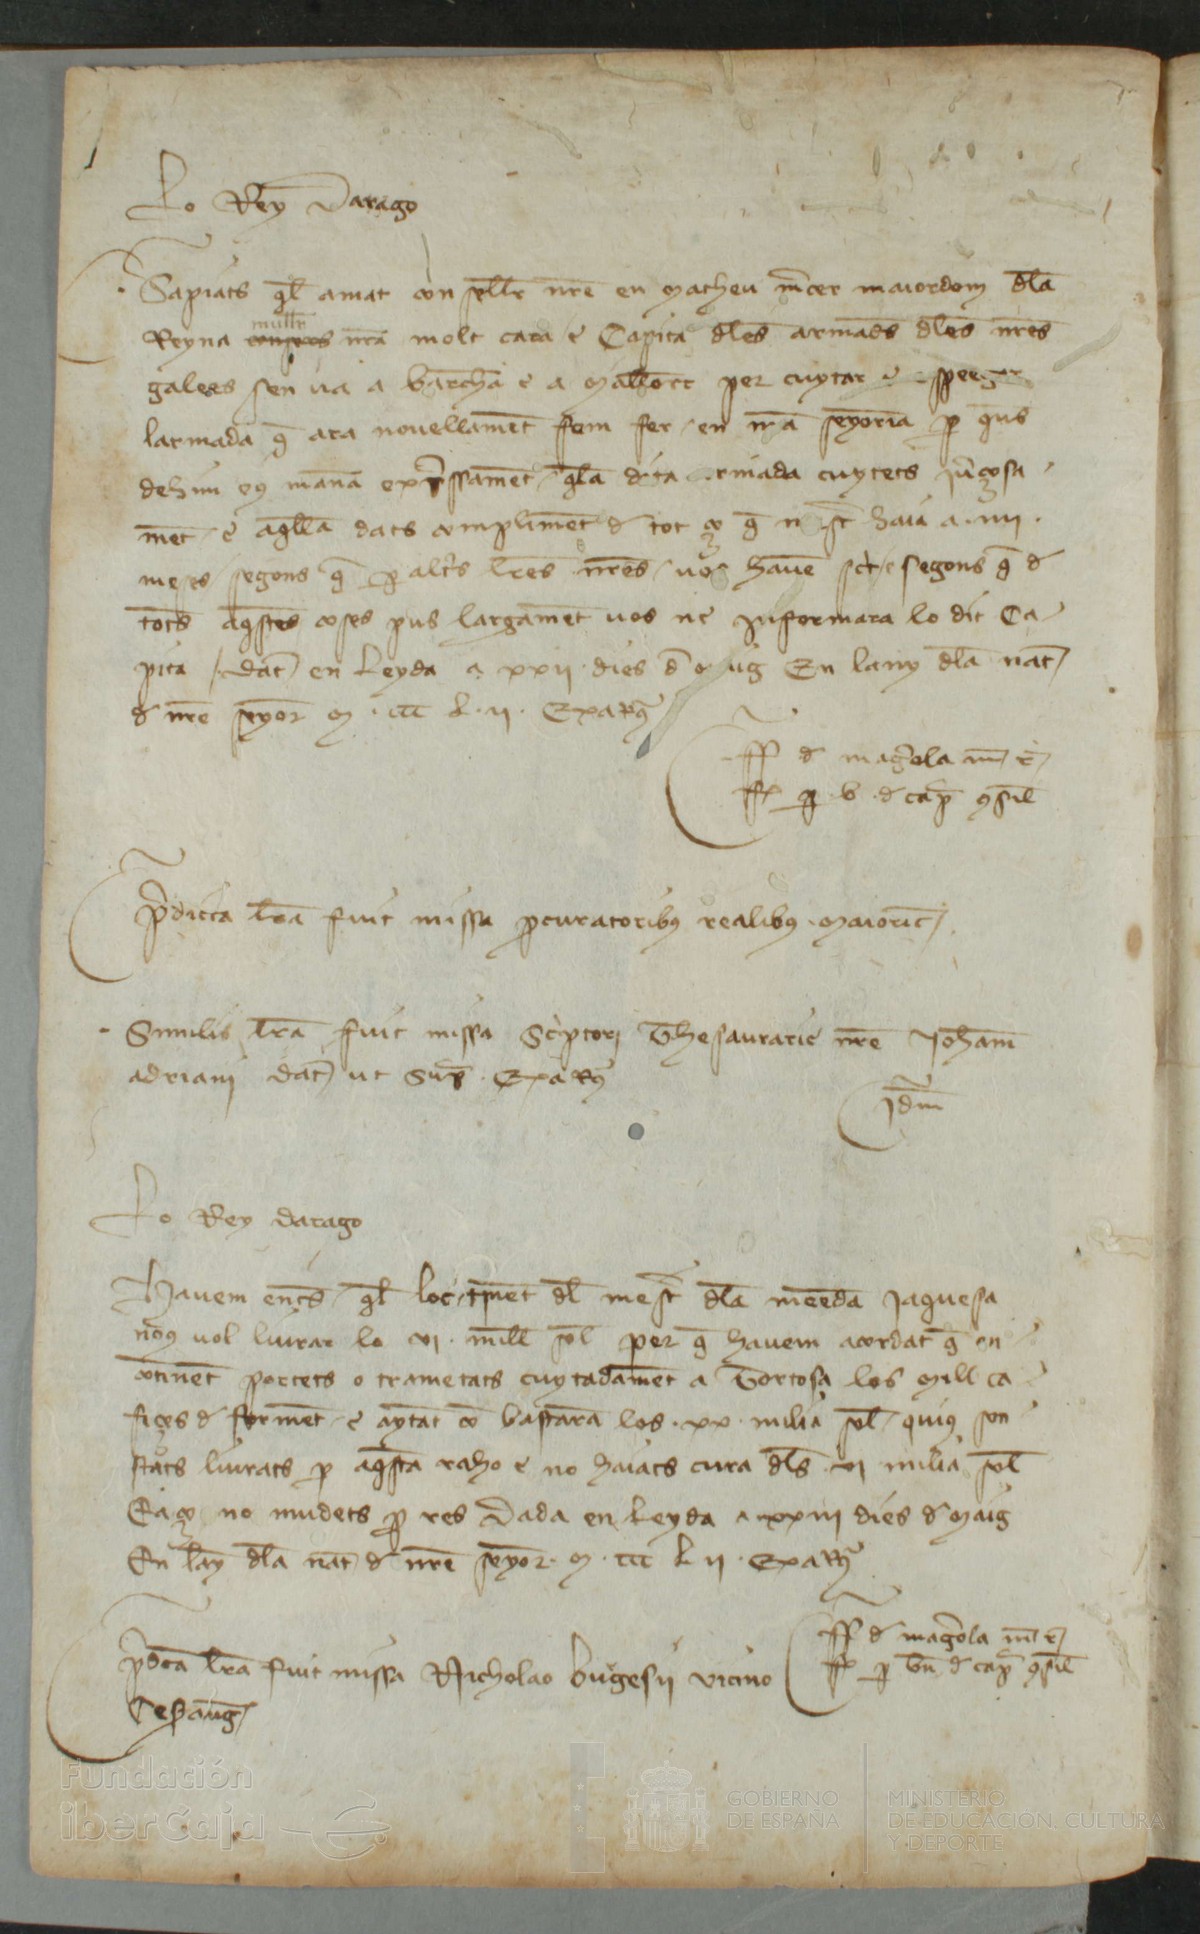 Lo Rey Darago
Sapiats q̄l amat consellr̄ nr̄e en Matheu m̄cer maiordom dl̄a
Reyna mullr̄ nr̄a molt cara e Capita dl̄es armad̄s dl̄es nr̄es
galees sen va a barchā e a Mallorc̄ per cuytar e speegar
larmada q̄ ara novellamēt fem fer en nr̄a senyoria p̄ q̄us
dehim eus manā exp̄ssamēt q̄la dita armada cuytets
mēt e aq̄lla dats complimēt d tot ço q̄ haia a .IIII.
meses segons q̄ p̄ altr̄s lr̄es nr̄es vos havē sc̄t e segons q̄ d
tot̄s aq̄stes coses pus largamēt vos ne informara lo dit Ca
pita Dat̄ en Leyda a XXII dies d En lany dl̄a nat̄
d nr̄e senyor M . CCC L . II . Exarȝ
d magēola
p̄ b . d cap̄ ꝯsil̄
p̄dicta lr̄a fuit missa p̄curatoribȝ realibȝ Maioric̄
Similis lr̄a fuit missa Sc̄ptori Thesaurarie nr̄e Joham̄
adriani dat̄ ut sup̄ . Exarȝ
Idm̄
Lo Rey darago
Havem enc̄s q̄l loctinēt dl̄ mest̄ dl̄a moneda Jaquesa
nous vol liurar lo VI . mill sol̄ per q̄ havem acordat q̄ en
ctinēt portets o trametats cuytadamēt a Tortosa los Mill ca
fiços d formēt e aytāt cō bastara los . XX . milia sol̄ quius son
stats liurats p̄ aq̄sta raho e no haiats cura dl̄s VI milia sol̄
E aço no mudets p̄ res Dada en Leyda a XXIII dies d Maig
En lāy dl̄a nat̄ d nr̄e senyor . M . CCC L II . Exarȝ
d magēola
p̄ d cap̄ ꝯsil̄
p̄dc̄a lr̄a fuit missa Nicholao burgesii vicino
Cesarauḡ
Fundación
iberCaja
GOBIERNO
DE ESPAÑA
MINISTERIO
DE EDUCACIÓN, CULTURA
Y DEPORTE